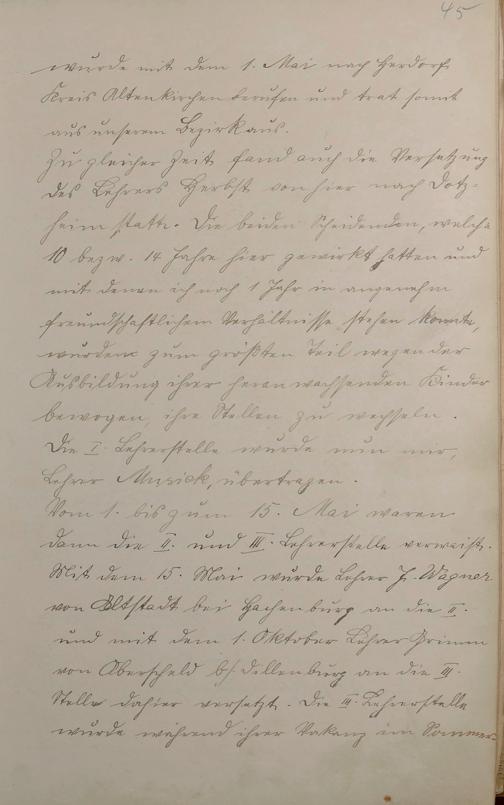 45
wurde mit dem 1. Mai nach Herdorf
Kreis Altenkirchen berufen und trat somit
aus unserem Bezirk aus.
Zu gleicher Zeit fand auch die Versetzung
des Lehrers Herbst von hier nach Dotz-
heim statt. Die beiden Scheidenden, welche
10 bezw. 14 Jahre hier gewirkt hatten und
mit denen ich noch 1 Jahr in angenehm
freundschaftlichem Verhältnisse stehen konnte,
wurden zum größten Teil wegen der
Ausbildung ihrer heranwachsenden Kinder
bewogen, ihre Stellen zu wechseln.
Die I. Lehrerstelle wurde nun mir,
Lehrer Musick, übertragen.
Vom 1. bis zum 15. Mai waren
dann die II. und III. Lehrerstelle verwaist.
Mit dem 15. Mai wurde Lehrer J. Wagner
von Altstadt bei Hachenburg an die II.
und mit dem 1. Oktober Lehrer Grimm
von Oberscheld b/ Dillenburg an die III.
Stelle dahier versetzt. Die III. Lehrerstelle
wurde während ihrer Vakanz im Sommer-